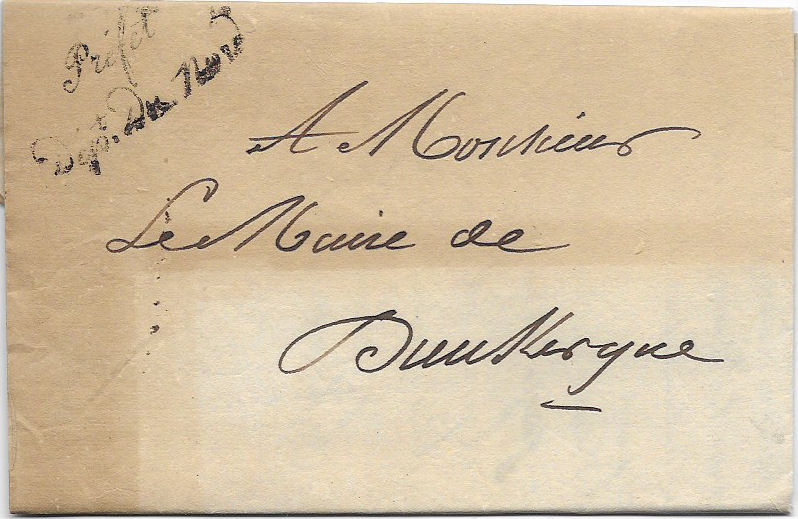 Préfet
Dépt. Du Nord
A Monsieur
Le Maire de
Dunkerque